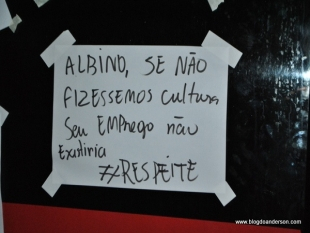 ALBINO, SE NÃO
FIZESSEMOS CULTURA
SEU EMPREGO NÃO
EXISTIRIA
#RESPEITE
www.blogdoanderson.com